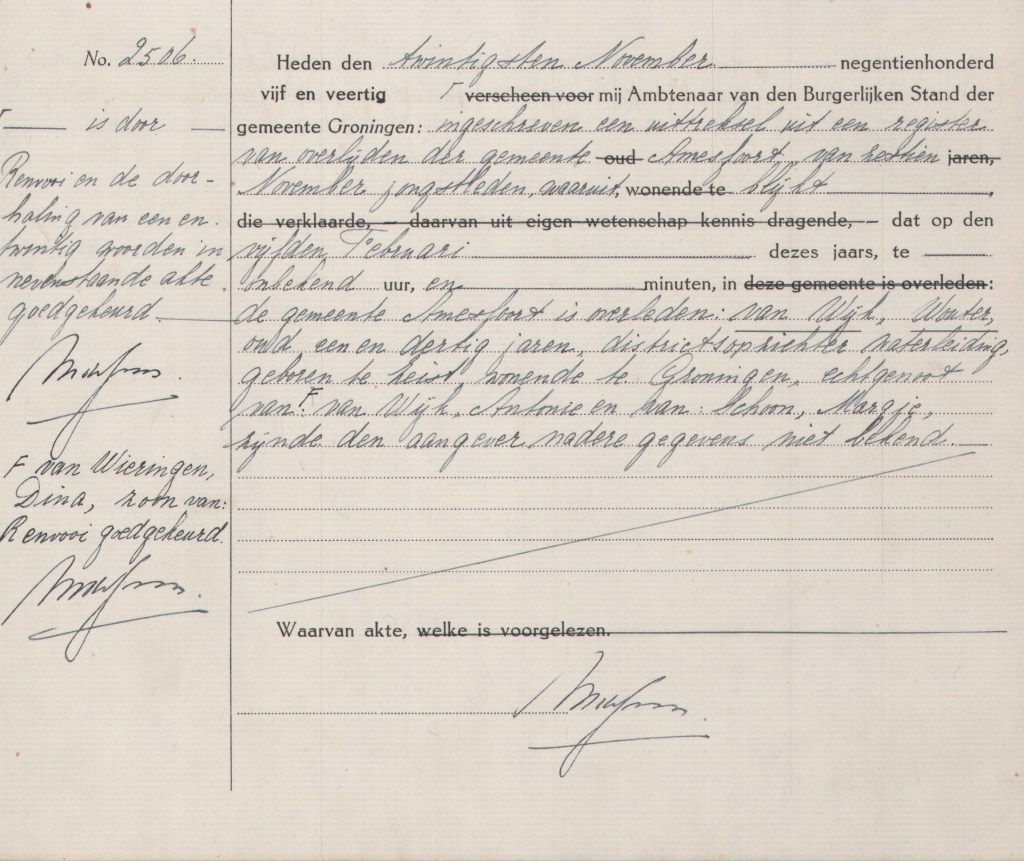 No. 2506.
Γ is door
Renvooi en de door-
haling van een en
twintig woorden in
nevenstaande akte
goedgekeurd.
F van Wieringen,
Dina, zoon van:
Renvooi goedgekeurd.
Heden den twintigsten November negentienhonderd
vijf en veertig Γ verscheen voor mij Ambtenaar van den Burgerlijken Stand der
gemeente Groningen: ingeschreven een uittreksel uit een register
van overlijden der gemeente oud Amesfoort, van zestien jaren,
November jongstleden, waaruit, wonende te blijkt ,
die verklaarde, — daarvan uit eigen wetenschap kennis dragende, — dat op den
vijfden Februari dezes jaars, te
onbekend uur, en minuten, in deze gemeente is overleden:
de gemeente Amesfoort is overleden: van Wijk, Wouter,
oud een en dertig jaren, districtsoprichter waterleiding,
geboren te Zeist, wonende te Groningen, echtgenoot
van: F van Wijk, Antonie en van: Schoon, Margje,
zijnde den aangever nadere gegevens niet bekend.
Waarvan akte, welke is voorgelezen.